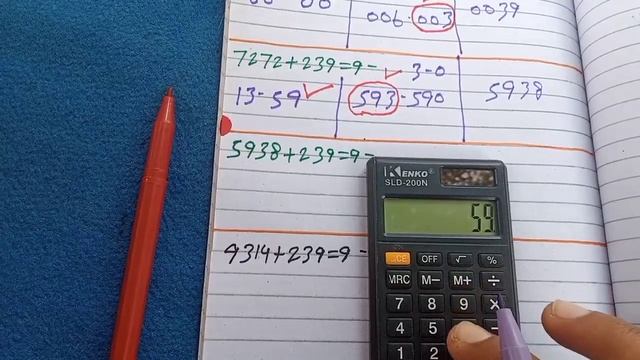 006-003 0039
7272+239=9- ✓ 3-0
13-59 ✓ 593-590 5938
5938+239=9-
KENKO
SLD-200N
59
4314+239=9-
CE OFF √ %
MRC M- M+ ÷
7 8 9 ×
4 5 -
1 2